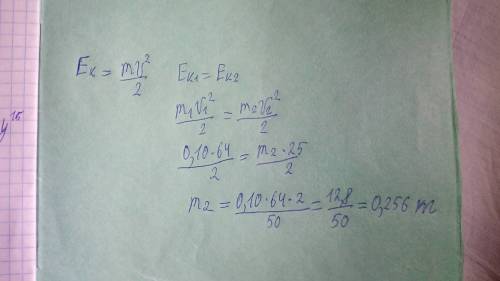 Eк = mv²/2   Eк1 = Eк2
m1v1²/2 = m2v2²/2
0,10·64/2 = m2·25/2
m2 = 0,10·64·2/50 = 12,8/50 = 0,256 кг